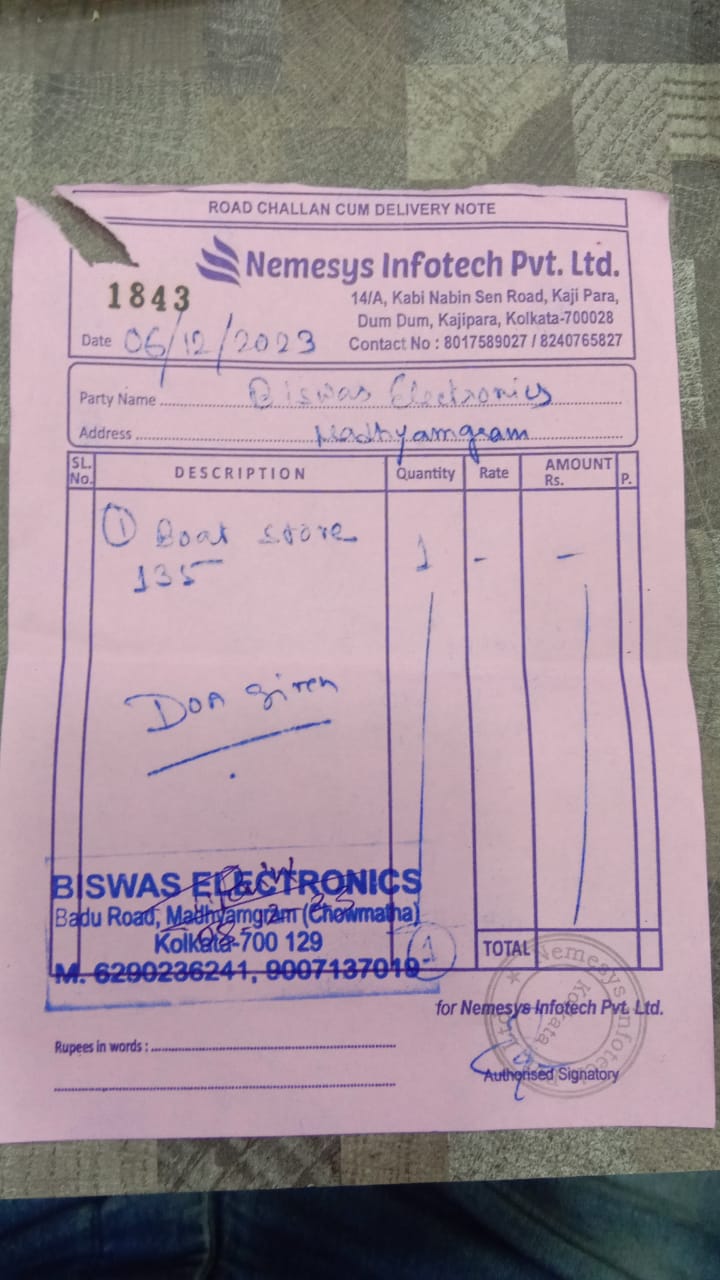 ROAD CHALLAN CUM DELIVERY NOTE
Nemesys Infotech Pvt. Ltd.
1843
14/A, Kabi Nabin Sen Road, Kaji Para,
Dum Dum, Kajipara, Kolkata-700028
Date 06/12/2023
Contact No : 8017589027 / 8240765827
Party Name Biswas Electronics
Address Madhyamgram
SL. No. DESCRIPTION Quantity Rate AMOUNT Rs. P.
① Boat store 1 - -
135
DOA given
BISWAS ELECTRONICS
Badu Road, Madhyamgram (Chowmatha)
Kolkata-700 129
M. 6290236241, 9007137019
1
TOTAL
for Nemesys Infotech Pvt. Ltd.
Nemesys Infotech Kolkata
Rupees in words :
Authorised Signatory